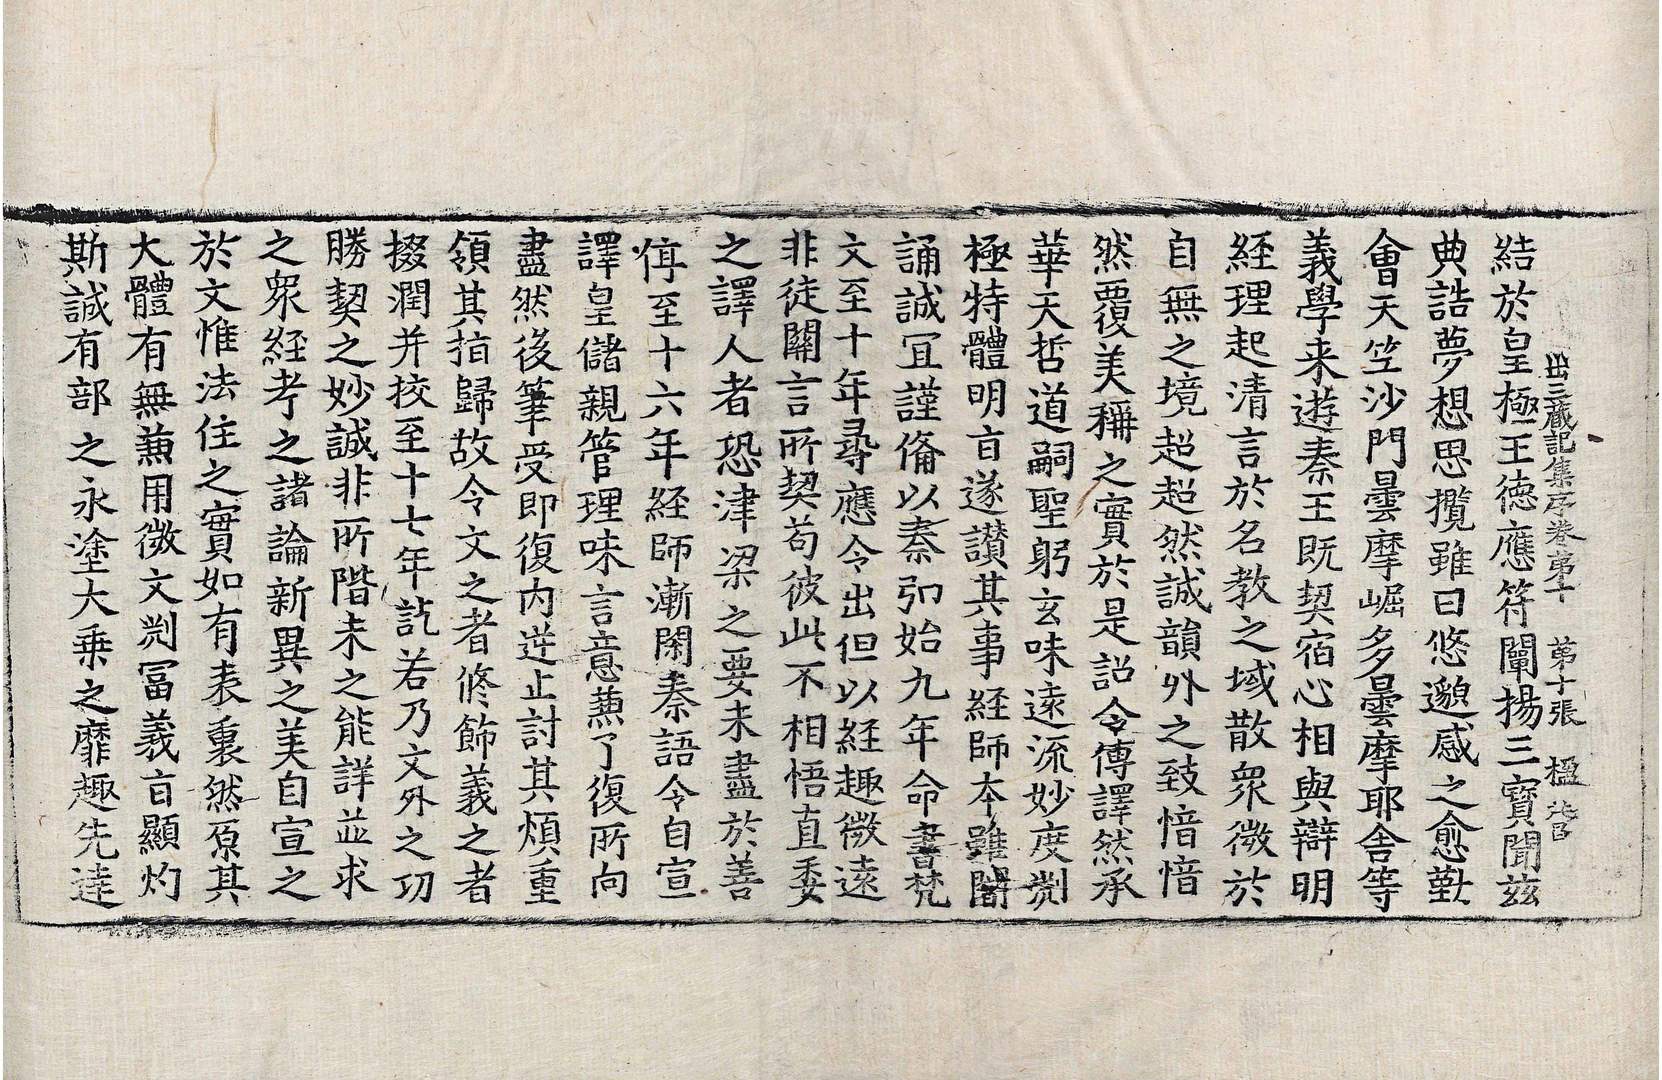 出三藏記集序卷苐十 苐十張 楹
結於皇極王德應符闡揚三寶聞玆
典誥夢想思攬雖曰悠邈感之愈勤
會天竺沙門曇摩崛多曇摩耶舎等
義學来遊秦王既契宿心相與辯明
経理起清言於名教之域散衆微於
自無之境超超然誠韻外之致愔愔
然覆美稱之實於是詔令傳譯然承
華天哲道嗣聖躬玄味逺流妙度㓨
極特體明㫖遂讃其事経師本雖闇
誦誠冝謹俻以秦弘始九年命書梵
文至十年尋應令出但以経趣微逺
非徒關言所契苟彼此不相悟直委
之譯人者恐津梁之要未盡於善
停至十六年経師漸閑秦語令自宣
譯皇儲親管理味言意兼了復所向
盡然後筆受即復内逆止討其煩重
領其指歸故令文之者修飾義之者
掇潤并挍至十七年訖若乃文外之功
勝契之妙誠非所階未之能詳並求
之衆経考之諸論新異之美自宣之
於文惟法住之實如有表裏然原其
大體有無兼用微文㓨冨義㫖顯灼
斯誠有部之永塗大乗之靡趣先達